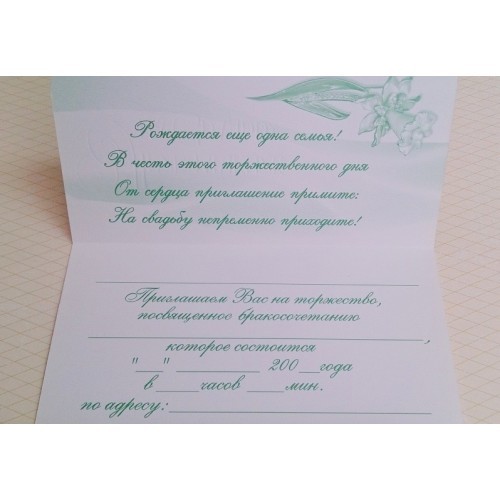 Рождается еще одна семья!
В честь этого торжественного дня
От сердца приглашение примите:
На свадьбу непременно приходите!
Приглашаем Вас на торжество,
посвященное бракосочетанию
,
которое состоится
"___" __________ 200__года
в_____часов ____мин.
по адресу: